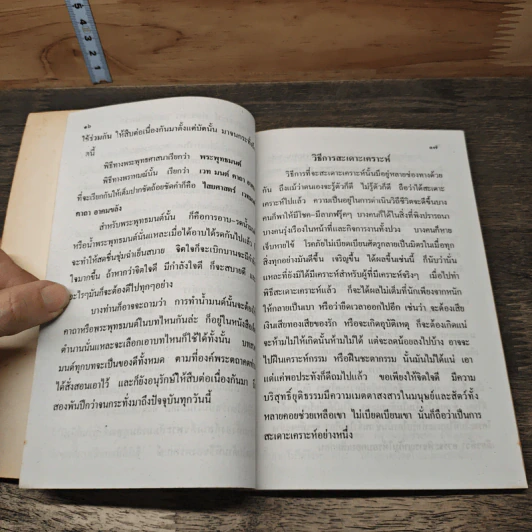 ๑๖
ใช้ร่วมกัน ให้สืบต่อเนื่องกันมาตั้งแต่บัดนั้น มาจนกระทั่ง
พิธีทางพระพุทธศาสนาเรียกว่า พระพุทธมนต์
พิธีทางพราหณ์นั้น เรียกว่า เวท มนต์ คาถา
ที่จะเรียกกันให้เต็มปากชัดถ้อยชัดคำก็คือ ไสยศาสตร์
คาถา อาคมขลัง
สำหรับพระพุทธมนต์นั้น ก็คือการอาบ-รดน้ำ
หรือน้ำพระพุทธมนต์นั่นแหละเมื่อได้อาบได้รดกันไปแล้ว
จะทำให้สดชื่นชุ่มฉ่ำเย็นสบาย จิตใจก็จะเบิกบาน
ใจมากขึ้น ถ้าหากว่าจิตใจดี มีกำลังใจดี ก็จะสบายดี
อะไรๆมันก็จะต้องดีไปทุกๆอย่าง
บางท่านก็อาจจะถามว่า การทำน้ำมนต์นั้นจะต้อง
คาถาหรือพระพุทธมนต์ในบทไหนกันล่ะ ก็อยู่ในหนังสือ
ตำนานนั่นแหละจะเลือกเอาบทไหนก็ใช้ได้ทั้งนั้น
มนต์ทุกบทจะเป็นของดีทั้งหมด ตามที่องค์พระตถาคต
ได้สั่งสอนเอาไว้ และก็ยังอนุรักษ์ให้สืบต่อเนื่องกันมา
สองพันปีกว่าจนกระทั่งมาถึงปัจจุบันทุกวันนี้
๑๗
วิธีการสะเดาะเคราะห์
วิธีการที่จะสะเดาะเคราะห์นั้นมีอยู่หลายช่องทางด้วย
กัน ถึงแม้ว่าตนเองจะรู้ตัวก็ดี ไม่รู้ตัวก็ดี ถือว่าได้สะเดาะ
เคราะห์ไปแล้ว ความเป็นอยู่ในการดำเนินวิถีชีวิตจะดีขึ้นบาง
คนก็พาให้มีโชค-มีลาภฟรุ๊คๆ บางคนก็ได้ในสิ่งที่พึงปรารถนา
บางคนรุ่งเรืองในหน้าที่และกิจการงานทั้งปวง บางคนก็หาย
เจ็บหายไข้ โรคภัยไม่เบียดเบียนศัตรูกลายเป็นมิตรในเมื่อทุก
สิ่งทุกอย่างมันดีขึ้น เจริญขึ้น ได้ผลขึ้นเช่นนี้ ก็นับว่านั่น
แหละที่ยังมิได้มีเคราะห์สำหรับผู้ที่มีเคราะห์จริงๆ เมื่อไปทำ
พิธีสะเดาะเคราะห์แล้ว ก็จะได้ผลไม่เต็มที่นักเพียงจากหนัก
ให้กลายเป็นเบา หรือว่ายืดเวลาออกไปอีก เช่นว่า จะต้องเสีย
เงินเสียทองเสียของรัก หรือจะเกิดอุบัติเหตุ ก็จะต้องเกิดแน่
จะห้ามไม่ให้เกิดนั้นห้ามไม่ได้ แต่จะลดน้อยลงไปบ้าง อาจจะ
ไปฝืนเคราะห์กรรม หรือฝืนชะตากรรม นั้นมันไม่ได้แน่ เอา
แต่แค่พอประทังก็ดีถมไปแล้ว ขอเพียงให้จิตใจดี มีความ
บริสุทธิ์ยุติธรรมมีความเมตตาสงสารในมนุษย์และสัตว์ทั้ง
หลายคอยช่วยเหลือเขา ไม่เบียดเบียนเขา นั่นก็ถือว่าเป็นการ
สะเดาะเคราะห์อย่างหนึ่ง